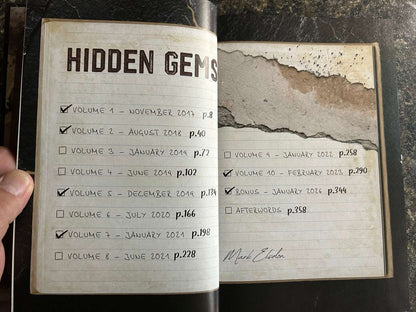 HIDDEN GEMS
VOLUME 1 - NOVEMBER 2017 p.8
VOLUME 2 - AUGUST 2018 p.40
VOLUME 3 - JANUARY 2019 p.77
VOLUME 4 - JUNE 2019 p.102
VOLUME 5 - DECEMBER 2019 p.134
VOLUME 6 - JULY 2020 p.166
VOLUME 7 - JANUARY 2021 p.198
VOLUME 8 - JUNE 2021 p.228
VOLUME 9 - JANUARY 2022 p.258
VOLUME 10 - FEBRUARY 2023 p.290
BONUS - JANUARY 2026 p.344
AFTERWORDS p.358
Mark